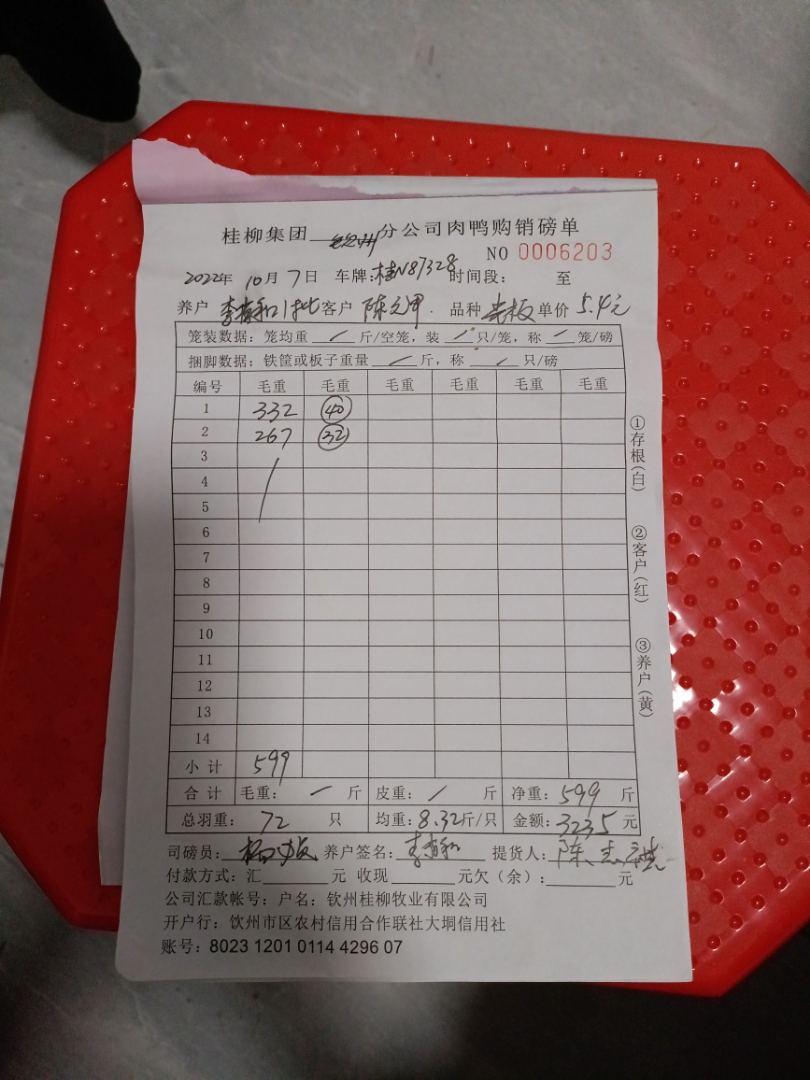 桂柳集团 钦州 分公司肉鸭购销磅单
NO 0006203
2022年 10月 7日 车牌:桂N87328 时间段: 至
养户 李 和1批 客户 陈 品种 光板 单价 5.4元
笼装数据: 笼均重 / 斤/空笼, 装 / 只/笼, 称 / 笼/磅
捆脚数据: 铁筐或板子重量 / 斤, 称 / 只/磅
编号 毛重 毛重 毛重 毛重 毛重 毛重
1 332 40
2 267 32
3 /
4
5
6
7
8
9
10
11
12
13
14
小计 599
合计 毛重: / 斤 皮重: / 斤 净重: 599 斤
总羽重: 72 只 均重: 8.32斤/只 金额: 3235 元
司磅员: 养户签名: 李 和 提货人: 陈
付款方式: 汇 元 收现 元欠(余): 元
公司汇款帐号: 户名: 钦州桂柳牧业有限公司
开户行: 钦州市区农村信用合作联社大垌信用社
账号: 8023 1201 0114 4296 07
①存根(白)
②客户(红)
③养户(黄)